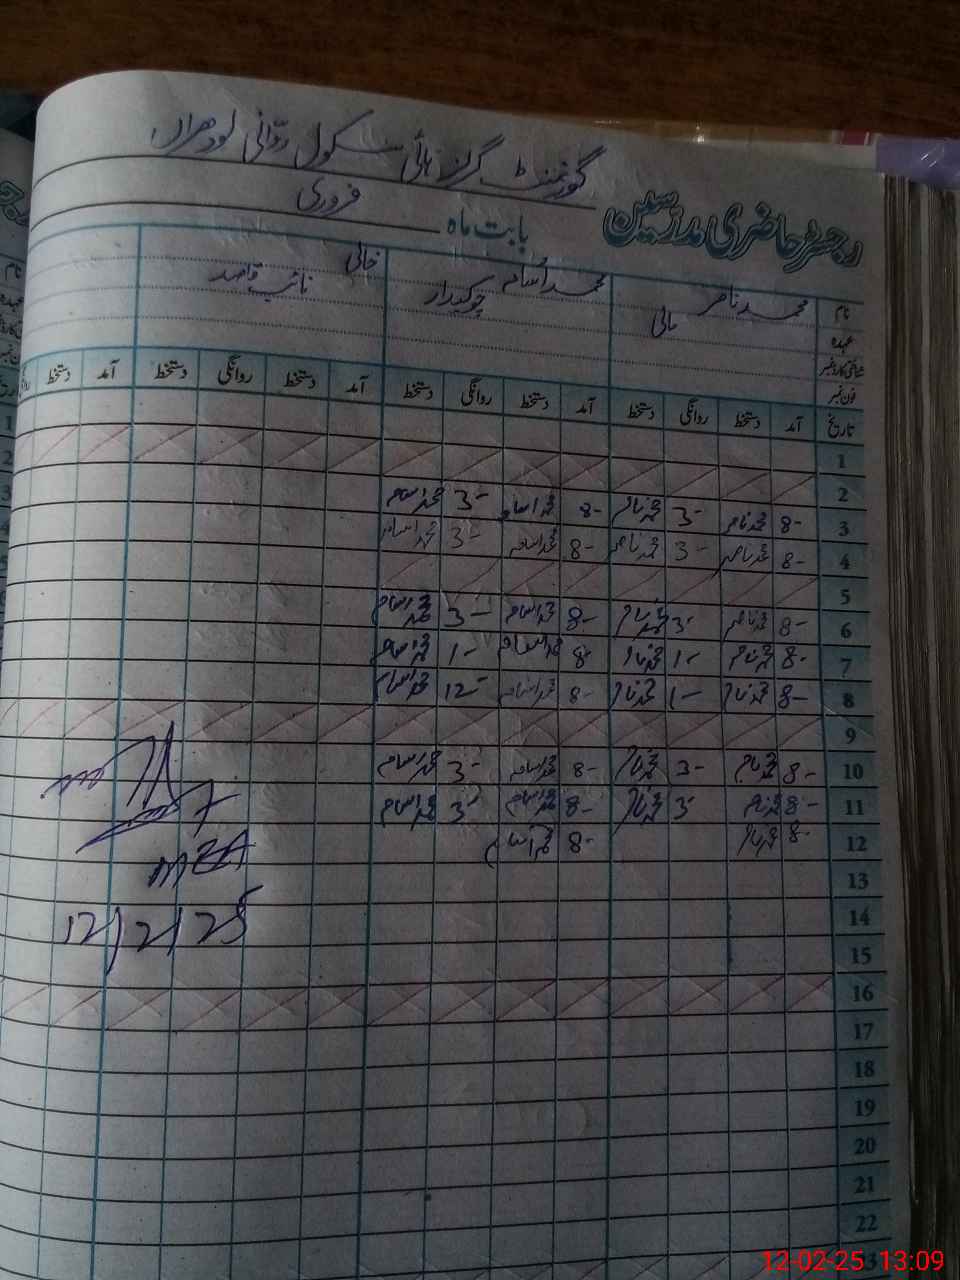 گورنمنٹ گرلز ہائی سکول روّانی لودھراں
رجسٹر حاضری مدرسین بابت ماہ فروری
نام محمد ناصر محمد اُسامہ خالی
عہدہ مالی چوکیدار نائب قاصد
شناختی کارڈ نمبر
فون نمبر
تاریخ آمد دستخط روانگی دستخط آمد دستخط روانگی دستخط آمد دستخط روانگی دستخط آمد دستخط
1
2
3 8- محمد ناصر 3- محمد ناصر 8- محمد اسامہ 3- محمد اسامہ
4 8- محمد ناصر 3- محمد ناصر 8- محمد اسامہ 3- محمد اسامہ
5
6 8- محمد ناصر 3- محمد ناصر 8- محمد اسامہ 3- محمد اسامہ
7 8- محمد ناصر 1- محمد ناصر 8- محمد اسامہ 1- محمد اسامہ
8 8- محمد ناصر 1- محمد ناصر 8- محمد اسامہ 12- محمد اسامہ
9
10 8- محمد ناصر 3- محمد ناصر 8- محمد اسامہ 3- محمد اسامہ
11 8- محمد ناصر 3- محمد ناصر 8- محمد اسامہ 3- محمد اسامہ
12 8- محمد ناصر 8- محمد اسامہ
MEA
13
14 12/2/25
15
16
17
18
19
20
21
22
12-02-25 13:09